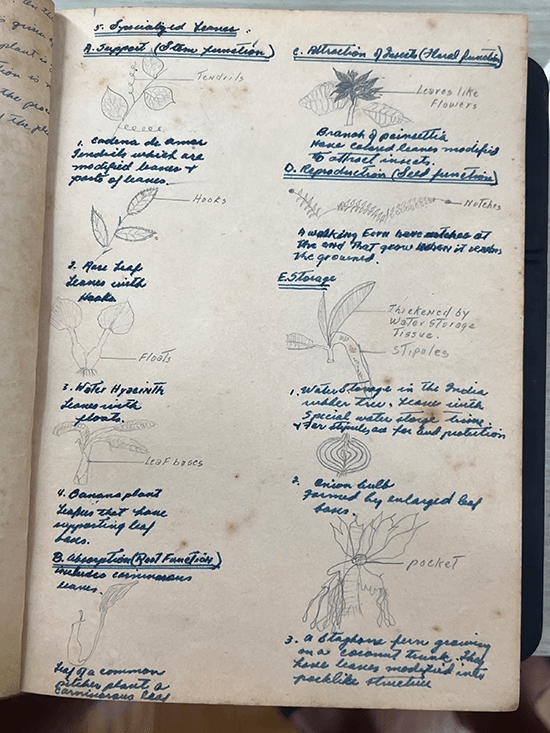 5. Specialized Leaves:
A. Support (Stem function)
Tendrils
1. Cadena de amor
Tendrils which are
modified leaves &
parts of leaves.
Hooks
2. Rose Leaf
Leaves with
Hooks
Floats
3. Water Hyacinth
Leaves with
floats.
Leaf bases
4. Banana plant
Leaves that have
supporting leaf
bases.
B. Absorption (Root Function)
Includes carnivorous
leaves.
Leaf of a common
pitcher plant a
carnivorous leaf
C. Attraction of Insects (Floral function)
Leaves like
Flowers
Branch of poinsettia
Have colored leaves modified
to attract insects.
D. Reproduction (Seed function)
Notches
A walking Fern have notches at
the end that grow when it
the ground.
E. Storage
Thickened by
Water Storage
Tissue.
Stipules
1. Water Storage in the India
rubber tree. Leave with
Special water storage tissue
& For stipules, as for bud protection
2. Onion bulb
Formed by enlarged leaf
bases.
pocket
3. A Staghorn fern growing
on a coconut trunk. They
have leaves modified into
pocklike structure